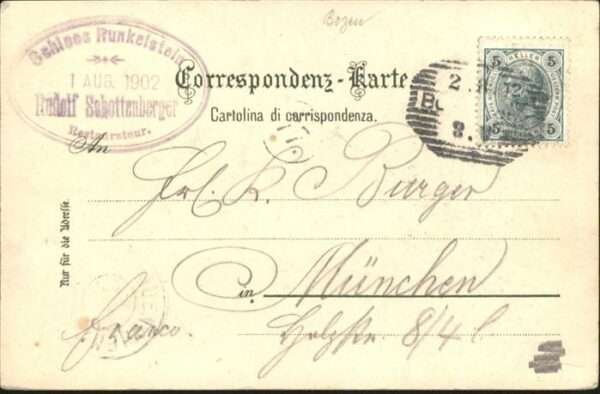 Bozen
Schloss Runkelstein
1 AUG. 1902
Rudolf Schottenberger
Restaurateur.
Correspondenz-Karte
Cartolina di corrispondenza.
5 HELLER 5
5 5
2
12
Bo
8.
An
Frl. K. Burger
in München
Franco.
Holzstr. 8/4 l.
Nur für die Adresse.